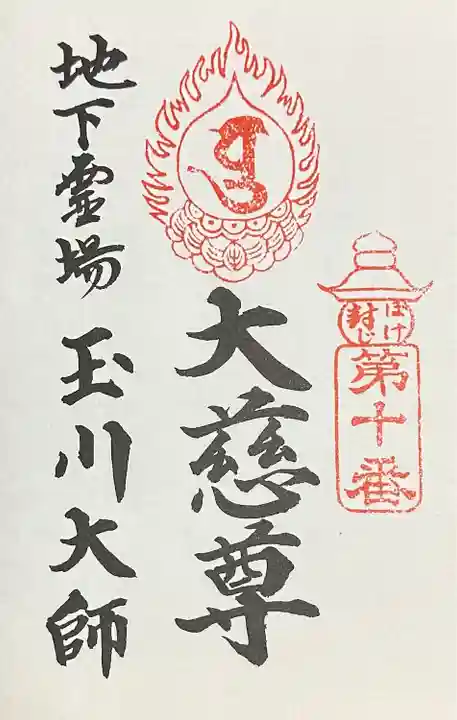 ぼけ
封じ
第十番
大慈尊
地下霊場 玉川大師